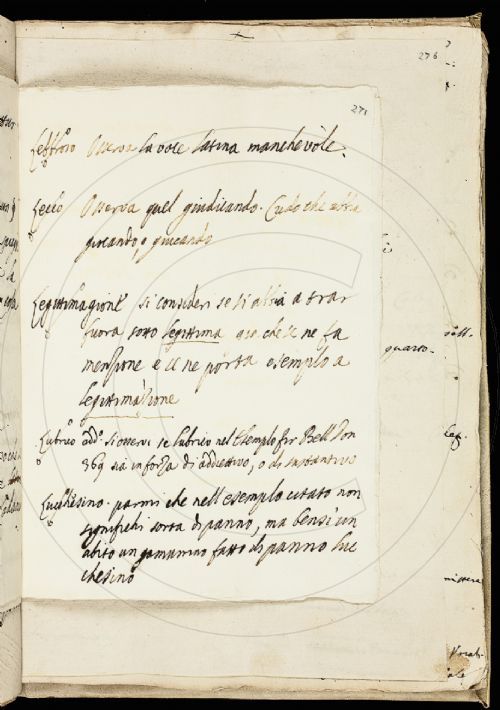 276
271
Osserva la voce latina manchevole.
Lecco Osserva quel giudicando. Credo che
giocando, o giucando
Legittimagione si consideri se si abbia a trar
fuora sotto legittima già che se ne fa
menzione e se ne porta esempio a
legittimazione
Lubrico add.º si osservi se lubrico nel Esemplo fir Bell Don
369 sia in forza di addiettivo, o di sustantivo
Lucchesino. parmi che nell'esempio citato non
significhi sorta di panno, ma bensì un
abito un gamurrino fatto di panno luc
chesino
quarto.